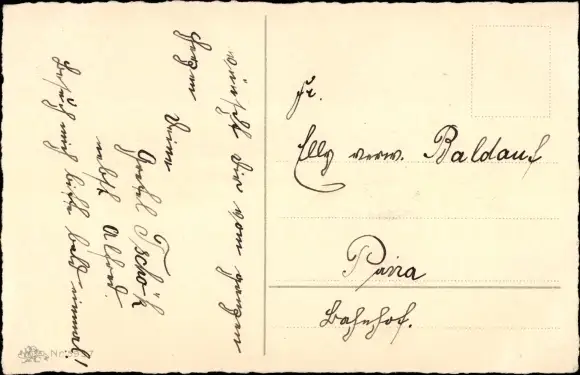 wünscht Dir vom ganzen
Herzen Deine
Gretel Tschök
nebst Alfred.
Besuch mich bitte bald einmal!
Fr.
Elly verw. Baldauf
Pirna
Bahnhof.